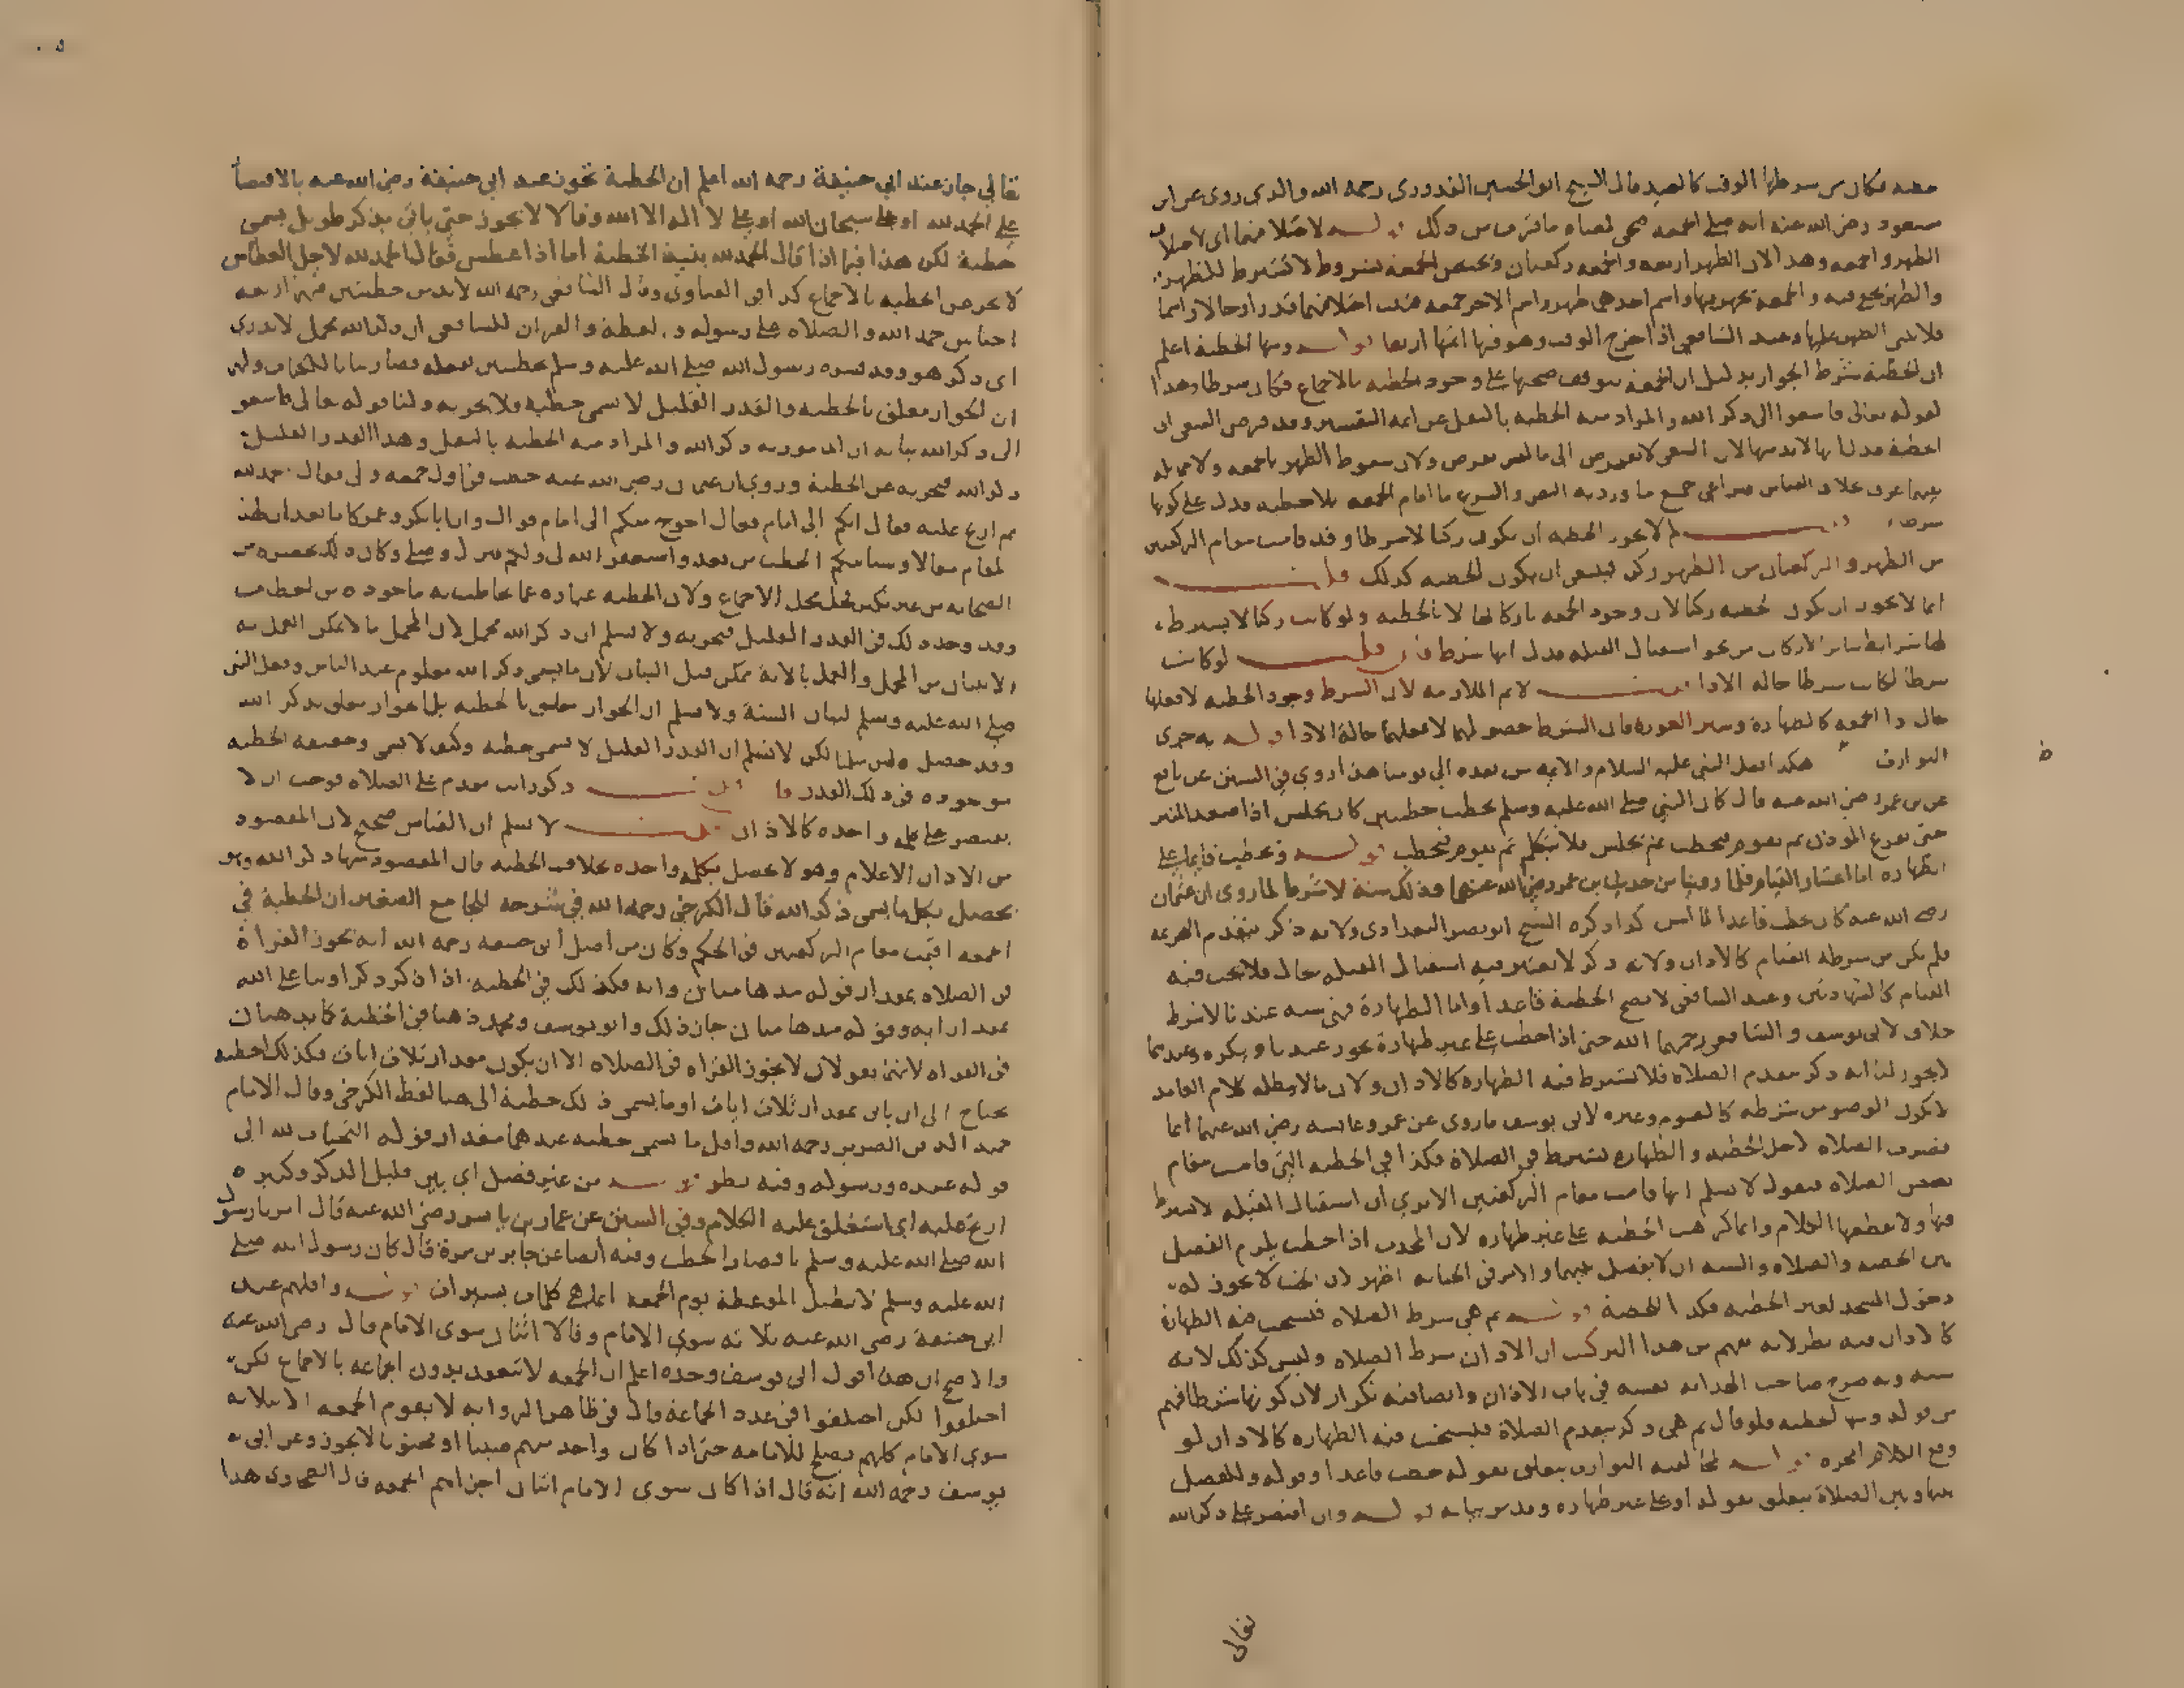 فيه فكان من شرطها الوقت كالعيد قال الشيخ ابو الحسين القدوري رحمه الله والذي روي عن ابن
مسعود رضي الله عنه انه صلى الجمعة ضحى معناه ما قرب من ذلك قوله لاختلافهما اي لاختلاف
الظهر والجمعة وهذا لان الظهر اربعة والجمعة ركعتان وتختص الجمعة بشروط لا تشترط للظهر
والظهر يخفى فيه والجمعة يجهر بها واسم احدهما ظهر واسم الاخر جمعة فثبت اختلافهما قدرا وحالا واسما
فلا يبنى الظهر عليها وعند الشافعي اذا خرج الوقت وهو فيها اتمها اربعا قوله ومنها الخطبة اعلم
ان الخطبة شرط الجواز بدليل ان الجمعة يتوقف صحتها على وجود الخطبة بالاجماع فكان شرطا وهذا
لقوله تعالى فاسعوا الى ذكر الله والمراد منه الخطبة بالنقل عن ائمة التفسير وقد فرض السعي الى
الخطبة فدل انها لا بد منها لان السعي لا يفترض الى ما ليس بفرض ولان سقوط الظهر بالجمعة
عرف بخلاف القياس فيراعى جميع ما ورد به النص والشرع ما اقام الجمعة بلا خطبة فدل على كونها
شرطا لم لا يجوز الخطبة ان تكون ركنا لا شرطا وقد قامت مقام الركعتين
من الظهر والركعتان من الظهر ركن فينبغي ان يكون الخطبة كذلك قلت
انما لا يجوز ان يكون الخطبة ركنا لان وجود الجمعة باركانها لا بالخطبة ولو كانت ركنا لاشترط
لها شرائط سائر الاركان من نحو استقبال القبلة فدل انها شرط فان قلت لو كانت
شرطا لكانت شرطا حالة الاداء قلت لا نسلم الملازمة لان الشرط وجود الخطبة لا فعلها
حال اداء الجمعة كالطهارة وستر العورة فان الشرط حصولهما لا فعلهما حالة الاداء قوله به جرى
التوارث هكذا فعل النبي عليه السلام والائمة من بعده الى يومنا هذا روي في السنن عن نافع
عن بن عمر رضي الله عنه قال كان النبي صلى الله عليه وسلم يخطب خطبتين كان يجلس اذا صعد المنبر
حتى يفرغ المؤذن ثم يقوم فيخطب ثم يجلس فلا يتكلم ثم يقوم فيخطب قوله ويخطب قائما على
الطهارة اما اعتبار القيام فلما روينا من حديث بن عمر رضي الله عنهما وذلك سنة لا شرط لما روي ان عثمان
رضي الله عنه كان يخطب قاعدا لما اسن كذا ذكره الشيخ ابو نصر البغدادي ولانه ذكر يتقدم الفريضة
فلم يكن من شرطه القيام كالاذان ولانه ذكر لا يعتبر فيه استقبال القبلة بحال فلا يجب فيه
القيام كالشهادتين وعند الشافعي لا يصح الخطبة قاعدا واما الطهارة فهي سنة عندنا لا شرط
خلافا لابي يوسف والشافعي رحمهما الله حتى اذا خطب على غير طهارة يجوز عندنا ويكره وعندهما
لا يجوز لنا انه ذكر يتقدم الصلاة فلا يشترط فيه الطهارة كالاذان ولان ما لا يبطله كلام العامد
لا يكون الوضوء من شرطه كالصوم وغيره لابي يوسف ما روي عن عمر وعائشة رضي الله عنهما انما
قصرت الصلاة لاجل الخطبة والطهارة تشترط في الصلاة فكذا في الخطبة التي قامت مقام
بعض الصلاة فنقول لا نسلم انها قامت مقام الركعتين الا يرى ان استقبال القبلة لا يشترط
فيها ولا يقطعها الكلام وانما كرهت الخطبة على غير طهارة لان المحدث اذا خطب يلزم الفصل
بين الخطبة والصلاة والسنة ان لا يفصل بينهما والامر في الجنابة اظهر لان الجنب لا يجوز له
دخول المسجد لغير الخطبة فكذا للخطبة قوله ثم هي شرط الصلاة فيستحب فيه الطهارة
كالاذان فيه نظر لانه يفهم من هذا التركيب ان الاذان شرط الصلاة وليس كذلك لانه
سنة وبه صرح صاحب الهداية نفسه في باب الاذان وايضا فيه تكرار لان كونها شرطا فهم
من قوله ومنها الخطبة فلو قال ثم هي ذكر يتقدم الصلاة فيستحب فيه الطهارة كالاذان لو
وقع الكلام نحره قوله لمخالفته التوارث يتعلق بقوله خطب قاعدا وقوله وللفصل
بينها وبين الصلاة يتعلق بقوله او على غير طهارة وقد مر بيانه قوله وان اقتصر على ذكر الله
تعالى
تعالى جاز عند ابي حنيفة رحمه الله اعلم ان الخطبة تجوز عند ابي حنيفة رضي الله عنه بالاقتصار
على الحمد لله او على سبحان الله او على لا اله الا الله وقالا لا يجوز حتى يأتي بذكر طويل يسمى
خطبة لكن هذا فيما اذا قال الحمد لله بنية الخطبة اما اذا عطس فقال الحمد لله لاجل العطاس
لا يجوز عن الخطبة بالاجماع كذا في الفتاوى وقال الشافعي رحمه الله لا بد من خطبتين فيهن اربعة
اجناس حمد الله والصلاة على رسوله والعظة والقران للشافعي ان ذكر الله مجمل لا يدرى
اي ذكر هو وقد فسره رسول الله صلى الله عليه وسلم بخطبتين بفعله فصار بيانا للكتاب ولهما
ان الجواز معلق بالخطبة والقدر القليل لا يسمى خطبة فلا يجوز به ولنا قوله تعالى فاسعوا
الى ذكر الله بيانه ان المأمور به ذكر الله والمراد منه الخطبة بالنقل وهذا القدر القليل
ذكر الله فيجوز به عن الخطبة وروي ان عثمان رضي الله عنه خطب في اول جمعة ولي فقال الحمد لله
ثم ارتج عليه فقال انكم الى امام فعال احوج منكم الى امام قوال وان ابابكر وعمر كانا يعدان لهذا
المقام مقالا وستأتيكم الخطب من بعد واستغفر الله لي ولكم ونزل وصلى وكان ذلك بحضرة من
الصحابة من غير نكير فحل محل الاجماع ولان الخطبة عبارة عما يخاطب به ماخوذة من الخطب
وقد وجد ذلك في القدر القليل فيجوز به ولا نسلم ان ذكر الله مجمل لان المجمل ما لا يمكن العمل به
الا ببيان من المجمل والعمل بالاية ممكن قبل البيان لان ما يسمى ذكر الله معلوم عند الناس وفعل النبي
صلى الله عليه وسلم لبيان السنة ولا نسلم ان الجواز معلق بالخطبة بل الجواز معلق بذكر الله
وقد حصل ولئن سلمنا لكن لا نسلم ان القدر القليل لا يسمى خطبة وكيف لا يسمى وحقيقة الخطبة
موجودة في ذلك القدر فان قلت ذكر ان تقدم على الصلاة فوجب ان لا
يقتصر على كلمة واحدة كالاذان قلت لا نسلم ان القياس صحيح لان المقصود
من الاذان الاعلام وهو لا يحصل بكلمة واحدة بخلاف الخطبة فان المقصود منها ذكر الله وهو
يحصل بكل ما يسمى ذكر الله قال الكرخي رحمه الله في شرحه الجامع الصغير ان الخطبة في
الجمعة اقيمت مقام الركعتين في الحكم وكان من اصل ابي حنيفة رحمه الله انه تجوز القراة
في الصلاة بمقدار قوله مدهامتان وانه فكذلك في الخطبة اذا ذكر ذكرا وثنا على الله
بمقدار اية وقوله مدهامتان جاز ذلك وابو يوسف ومحمد ذهبا في الخطبة كما يذهبان
في القراة لانهما يقولان لا يجوز القراة في الصلاة الا ان يكون مقدار ثلاث ايات فكذلك الخطبة
يحتاج الى ان ياتي بمقدار ثلاث ايات او ما يسمى ذلك خطبة الى هنا لفظ الكرخي وقال الامام
حميد الدين الضرير رحمه الله واقل ما يسمى خطبة عندهما مقدار قوله التحيات لله الى
قوله عبده ورسوله وفيه نظر قوله من غير فصل اي بين قليل الذكر وكثيره
ارتج عليه اي استغلق عليه الكلام وفي السنن عن عمار بن ياسر رضي الله عنه قال امرنا رسول
الله صلى الله عليه وسلم باقصار الخطب وفيه ايضا عن جابر بن سمرة قال كان رسول الله صلى
الله عليه وسلم لا يطيل الموعظة يوم الجمعة انما هي كلمات يسيرات قوله واقلهم عند
ابي حنيفة رضي الله عنه ثلاثة سوى الامام وقالا اثنان سوى الامام قال رضي الله عنه
والاصح ان هذا قول ابي يوسف وحده اعلم ان الجمعة لا تنعقد بدون الجماعة بالاجماع لكن
اختلفوا لكن اختلفوا في عدد الجماعة قال في ظاهر الرواية لا يقوم الجمعة الا بثلاثة
سوى الامام كلهم يصلح للامامة حتى اذا كان واحد منهم صبيا او مجنونا لا يجوز وعن ابي
يوسف رحمه الله انه قال اذا كان سوى الامام اثنان اجزاهم الجمعة قال الطحاوي هذا